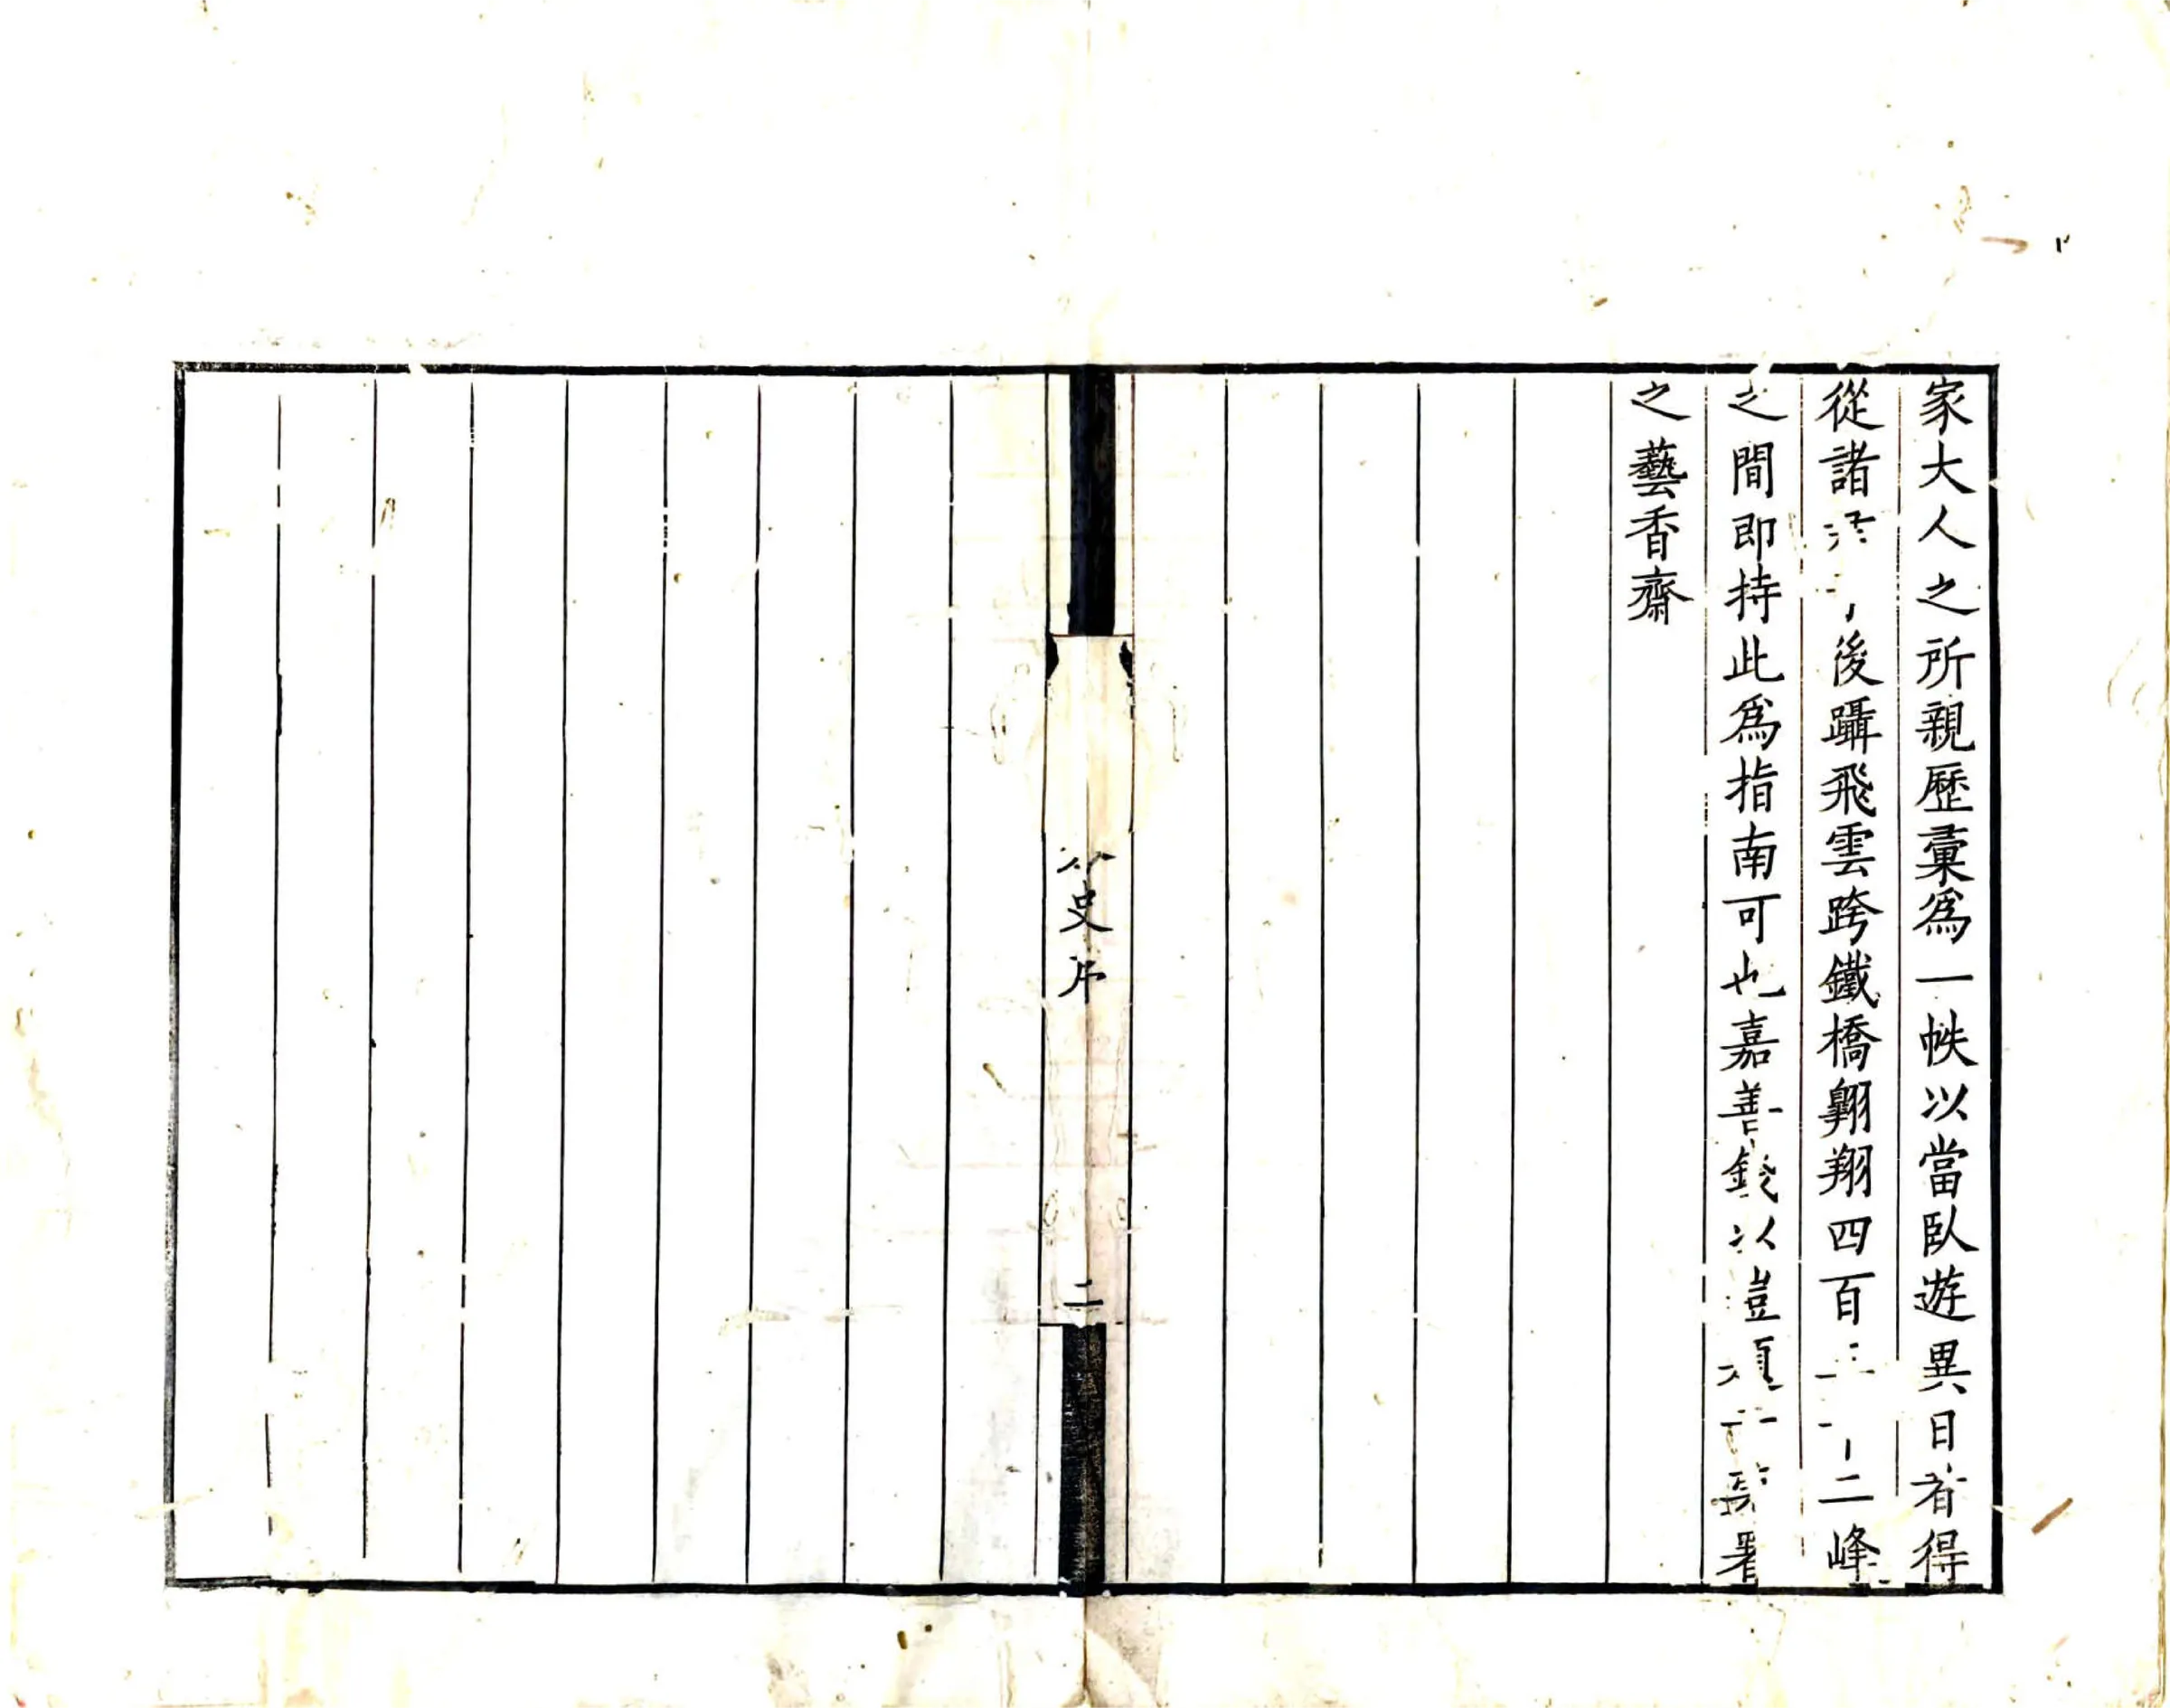 家大人之所親歷彙爲一帙以當臥遊異日者得
從諸後躡飛雲跨鐵橋翺翔四百二峰
之間即持此爲指南可也嘉善錢以塏題署
之藝香齋
史序
二